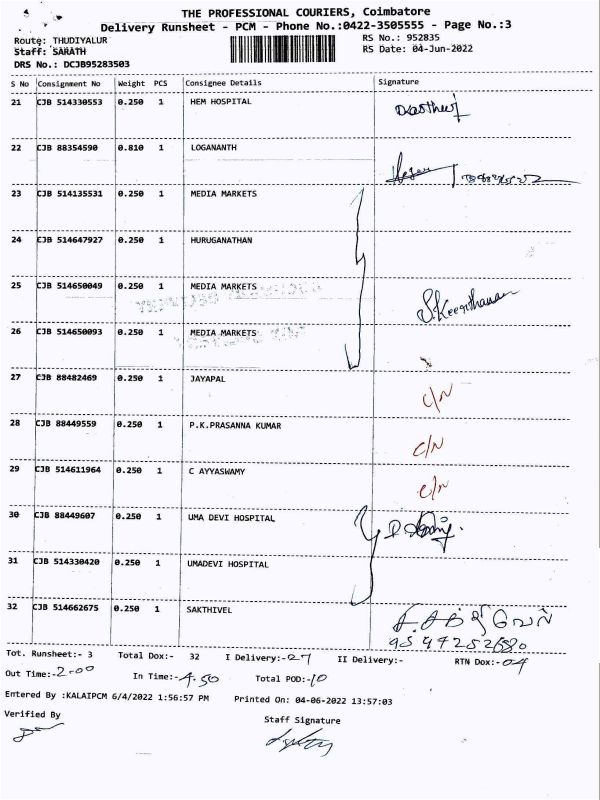 THE PROFESSIONAL COURIERS, Coimbatore
Delivery Runsheet - PCM - Phone No.:0422-3505555 - Page No.:3
Route: THUDIYALUR RS No.: 952835
Staff: SARATH RS Date: 04-Jun-2022
DRS No.: DCJB95283503
S No Consignment No Weight PCS Consignee Details Signature
21 CJB 514330553 0.250 1 HEM HOSPITAL
22 CJB 88354590 0.810 1 LOGANANTH
23 CJB 514135531 0.250 1 MEDIA MARKETS
24 CJB 514647927 0.250 1 HURUGANATHAN
25 CJB 514650049 0.250 1 MEDIA MARKETS S.Keerthanan
26 CJB 514650093 0.250 1 MEDIA MARKETS
27 CJB 88482469 0.250 1 JAYAPAL C/N
28 CJB 88449559 0.250 1 P.K.PRASANNA KUMAR C/N
29 CJB 514611964 0.250 1 C AYYASWAMY C/N
30 CJB 88449607 0.250 1 UMA DEVI HOSPITAL
31 CJB 514330420 0.250 1 UMADEVI HOSPITAL
32 CJB 514662675 0.250 1 SAKTHIVEL சி.சக்திவேல்
Tot. Runsheet:- 3 Total Dox:- 32 I Delivery:-27 II Delivery:- RTN Dox:-04
Out Time:-2.00 In Time:-4.50 Total POD:-10
Entered By :KALAIPCM 6/4/2022 1:56:57 PM Printed On: 04-06-2022 13:57:03
Verified By Staff Signature